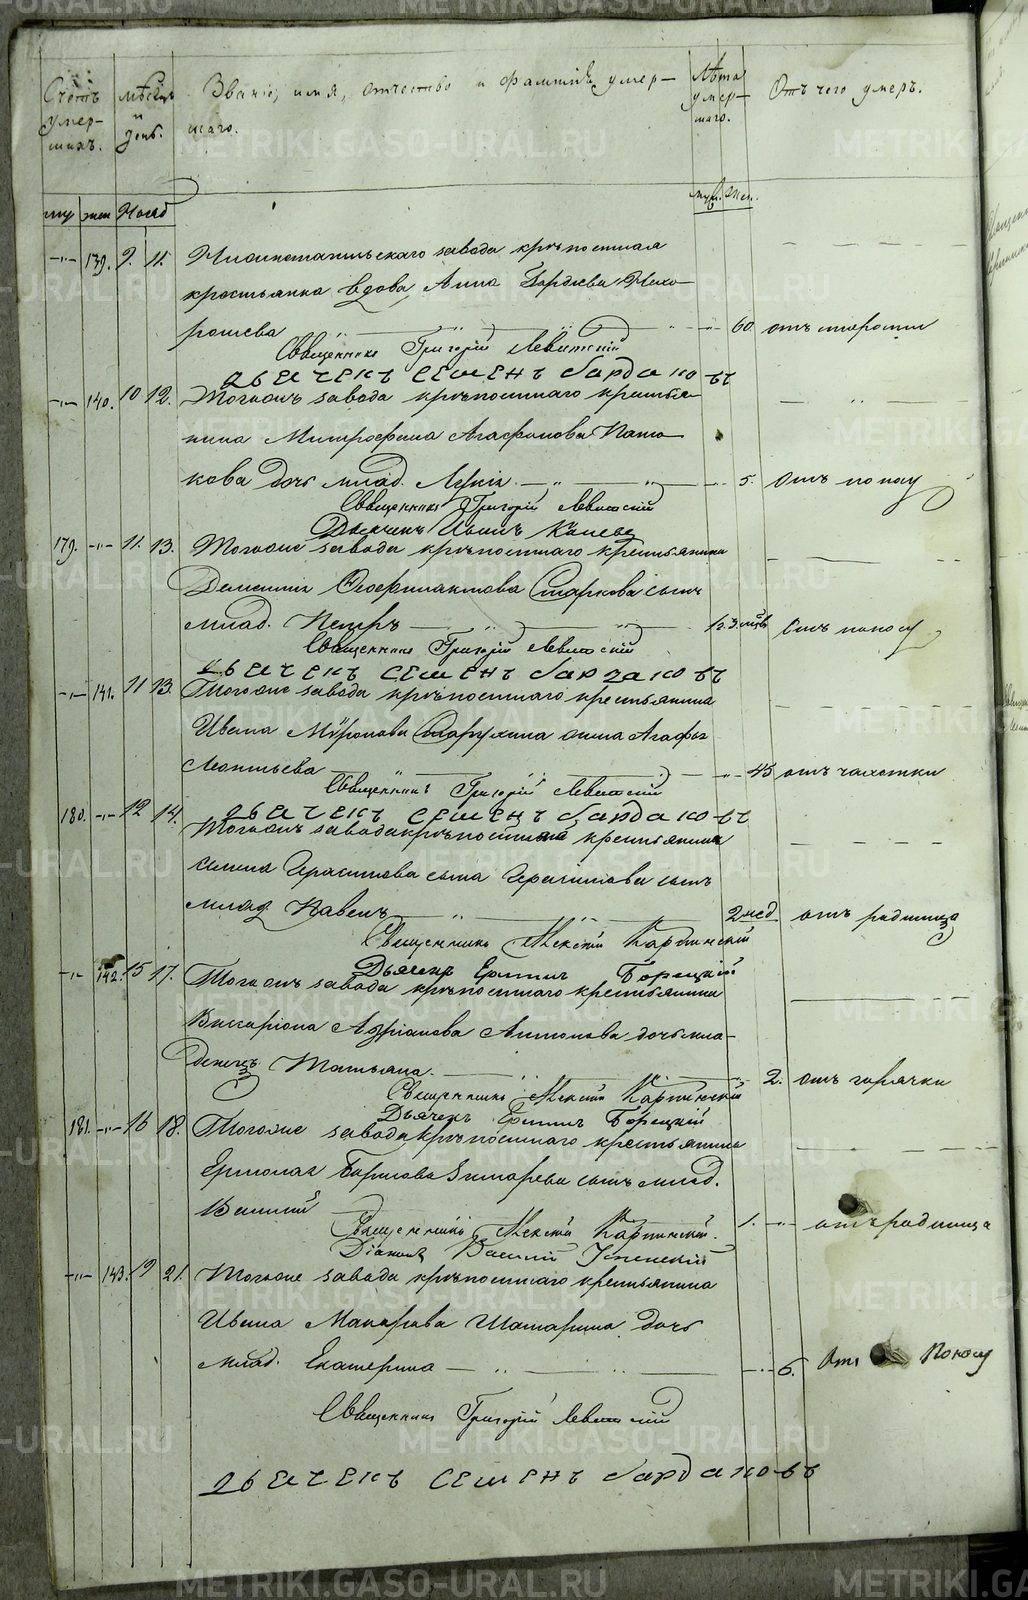 Счетъ умер-шихъ.
Мѣсяцъ и день.
Званіе, имя, отчество и фамилія умер-
шаго.
Лѣта умер-шаго.
Отъ чего умеръ.
му жен Нояб
муж. жен.
139. 9. 11. завода крѣпостная
крестьянка вдова Анна Гордѣева Нехо-
рошева 60 отъ старости
Священникъ Григорій Левитскій
дьячекъ Семенъ бардаковъ
140. 10 12. Тогожъ завода крѣпостнаго крестья-
нина Митрофана Агафонова
кова дочь млад. 5. отъ поносу
Священникъ Григорій Левитскій
Дьячекъ Иванъ
179. 11. 13. Тогоже завода крѣпостнаго крестьянина
Дементія Феофилактова Старкова сынъ
млад. Петръ Отъ поносу
Священникъ Григорій Левитскій
дьячекъ Семенъ бардаковъ
141. 11 13. Тогоже завода крѣпостнаго крестьянина
Ивана Миронова жена Агафья
Леонтьева 45 отъ чахотки
Священникъ Григорій Левитскій
180. 12 14. дьячекъ Семенъ бардаковъ
Тогожъ завода крѣпостнаго крестьянина
Герасимова сына Герасимова сынъ
млад. Павелъ 2 нед отъ родимца
Священникъ Алексій Карпинскій
Дьячекъ Борецкій
142. 15 17. Тогожъ завода крѣпостнаго крестьянина
Виссаріона Адріанова Антонова дочь мла-
денецъ Татьяна. 2. отъ горячки
Священникъ Алексій Карпинскій
Дьячекъ Борецкій
181. 16 18. Тогоже завода крѣпостнаго крестьянина
Ермолая сынъ млад.
Василій 1. отъ родимца
Священникъ Алексій Карпинскій.
Діаконъ Василій Успенскій
143. 19 21. Тогоже завода крѣпостнаго крестьянина
Ивана Макарова Шатарина дочь
млад. Екатерина 6. Отъ Поносу
Священникъ Григорій Левитскій
дьячекъ Семенъ бардаковъ
METRIKI.GASO-URAL.RU